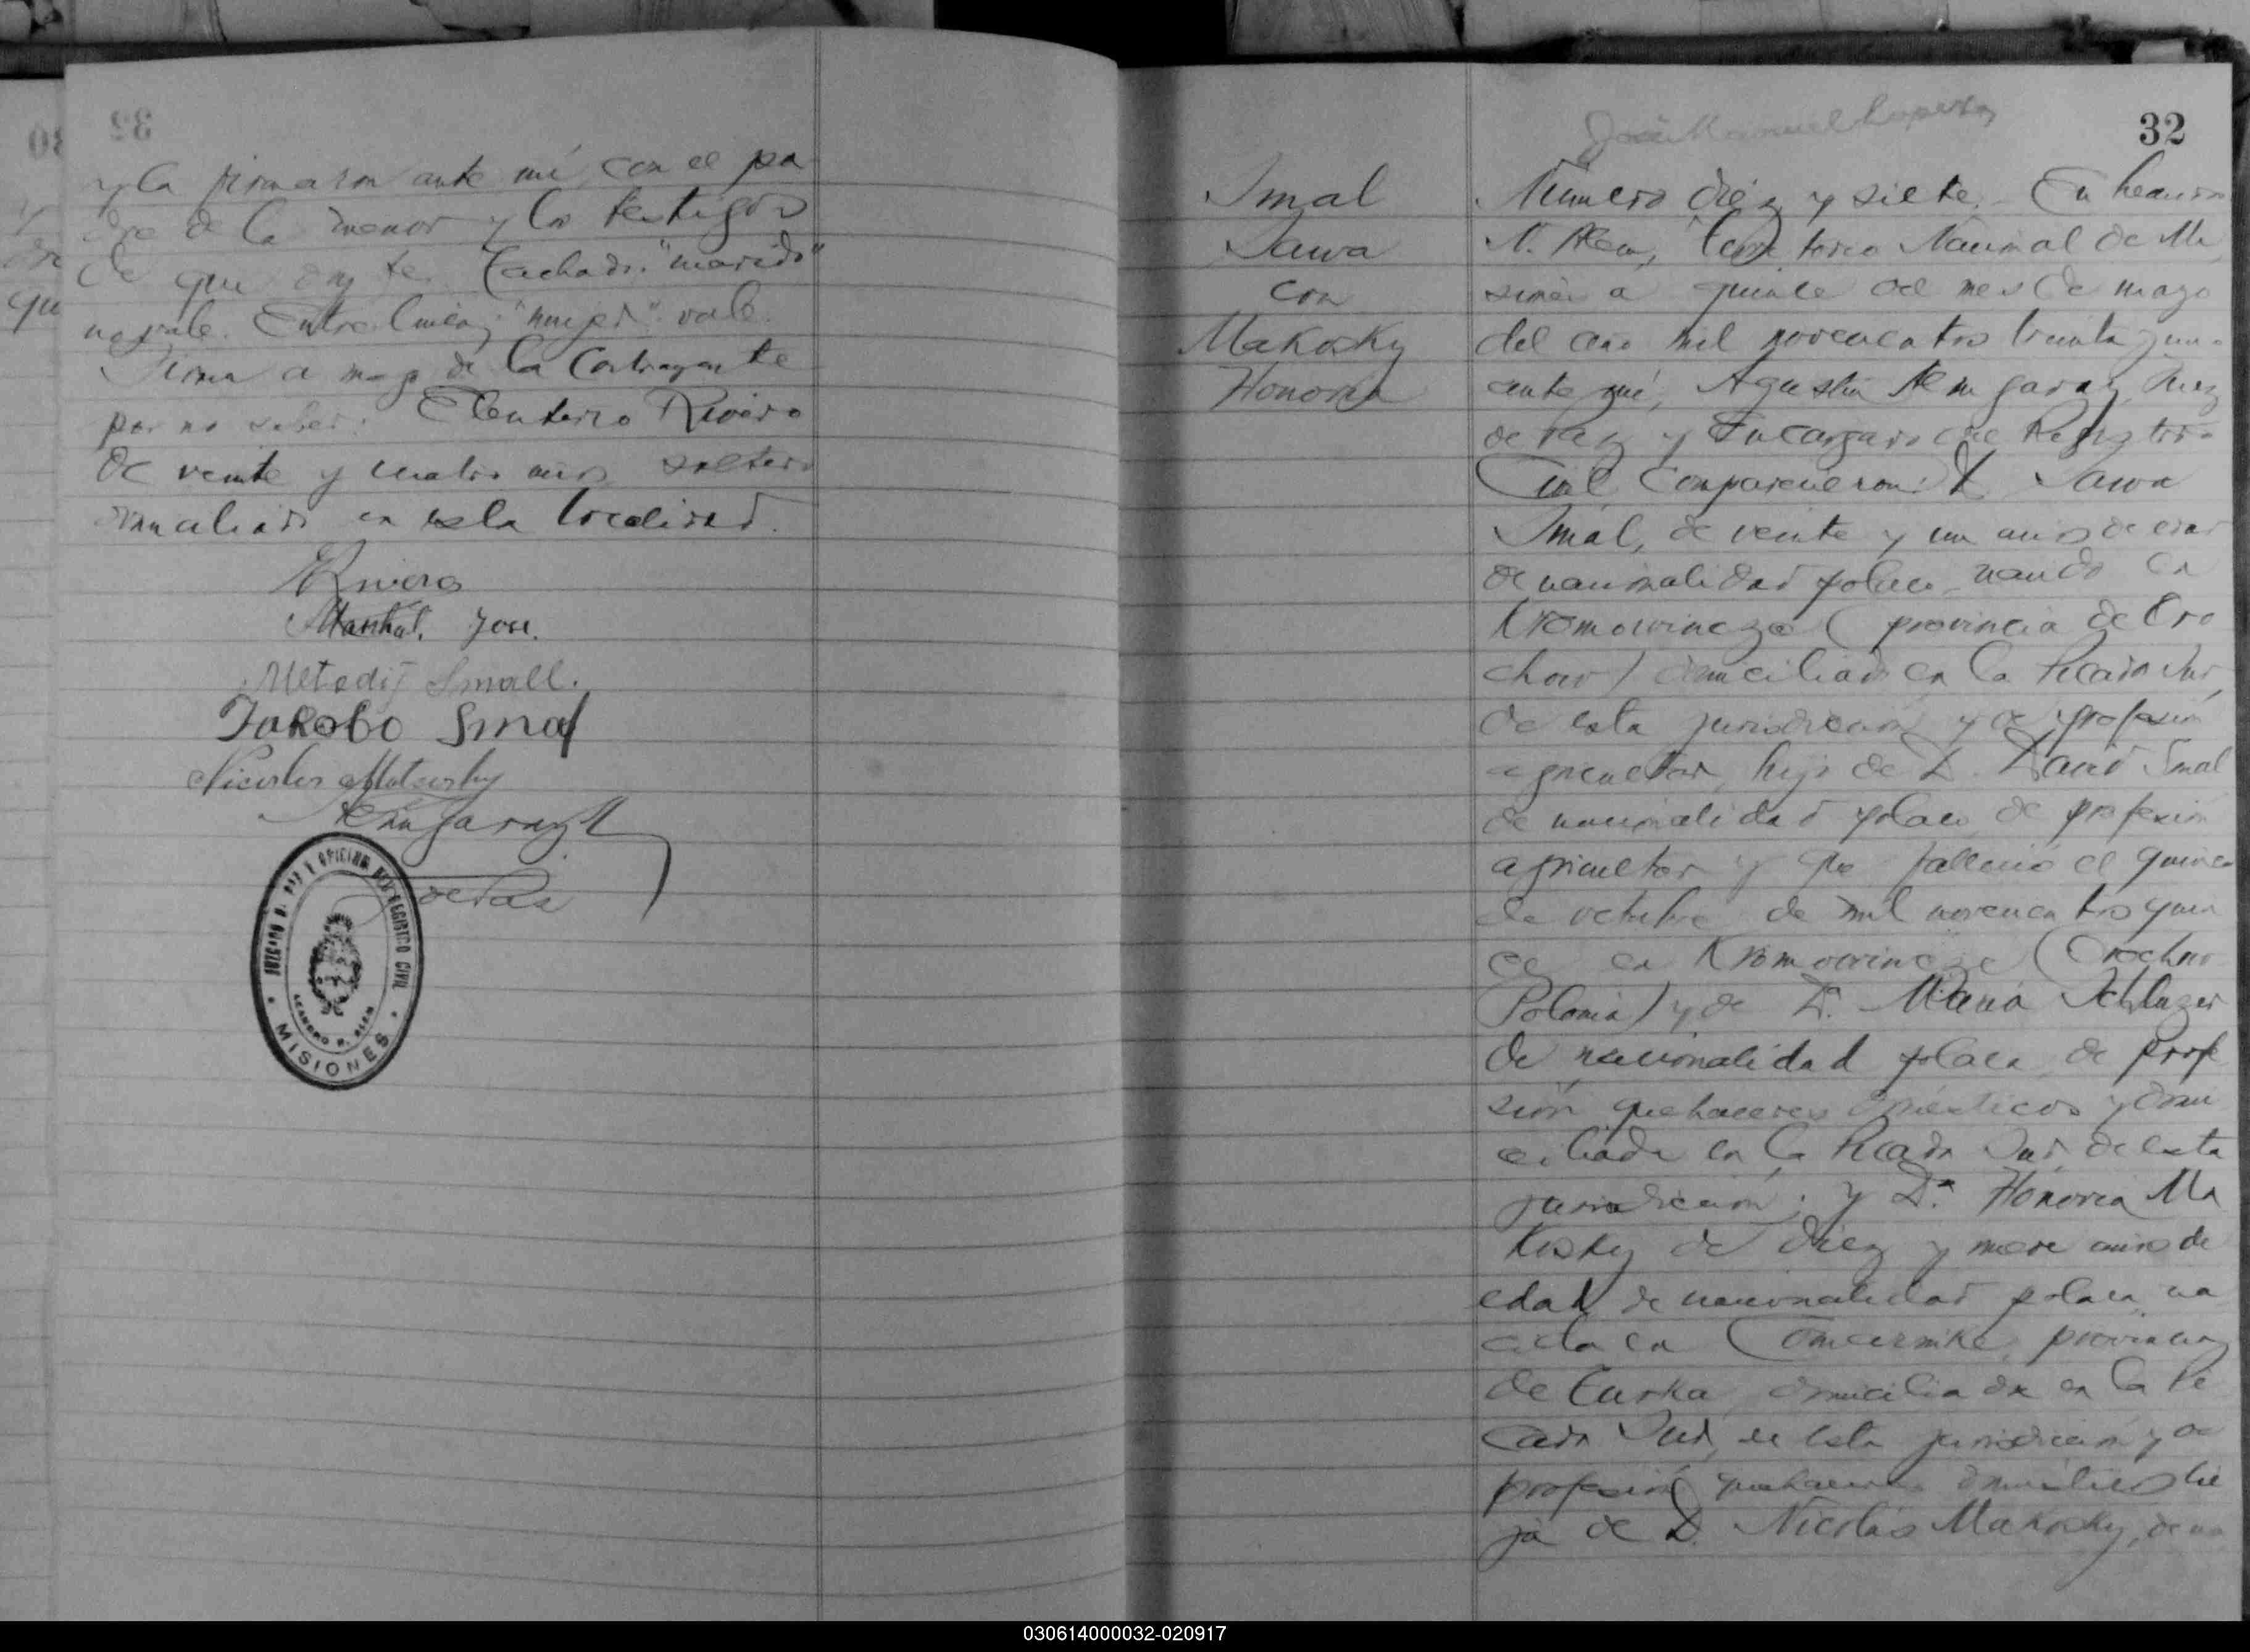 32
y la firmaron ante mí, con el pa
dre de la menor y los testigos
de que doy fe. Tachado: "marido"
no vale. Entre líneas: "mujer" vale.
Firma a ruego de la Contrayente
por no saber: Eleuterio Rivero
de veinte y cuatro años soltero
domiciliado en esta localidad.
Rivero
José.
Metodij Small.
Jakobo Smal
Nicolas
de Paz
JUZGADO DE PAZ Y OFICINA DEL REGISTRO CIVIL
LEANDRO N. ALEM
MISIONES
32
José Manuel
Smal
Sawa
con
Makosky
Honoria
Número diez y siete. En Leandro
N. Alem, Territorio Nacional de Mi
siones a quince del mes de mayo
del año mil novecientos treinta y uno
ante mí, Agustín Juez
de Paz y Encargado del Registro
Civil Comparecieron: D. Sawa
Smal, de veinte y un años de edad
de nacionalidad polaca nacido en
Kromowincze (provincia de Cro
chow) domiciliado en la Picada Sud,
de esta jurisdicción y de profesión
agricultor, hijo de D. David Smal
de nacionalidad polaco, de profesión
agricultor y que falleció el quince
de octubre de mil novecientos quin
ce en Kromowincze (Crochow
Polonia) y de Dª. María
de nacionalidad polaca, de profe
sión quehaceres domésticos y domi
ciliada en la Picada Sud, de esta
jurisdicción; y Dª. Honoria Ma
kosky de diez y nueve años de
edad, de nacionalidad polaca, na
cida en provincia
de Turka, domiciliada en la Pi
cada Sud, de esta jurisdicción y de
profesión quehaceres domésticos, hi
ja de D. Nicolás Makosky, de na
030614000032-020917